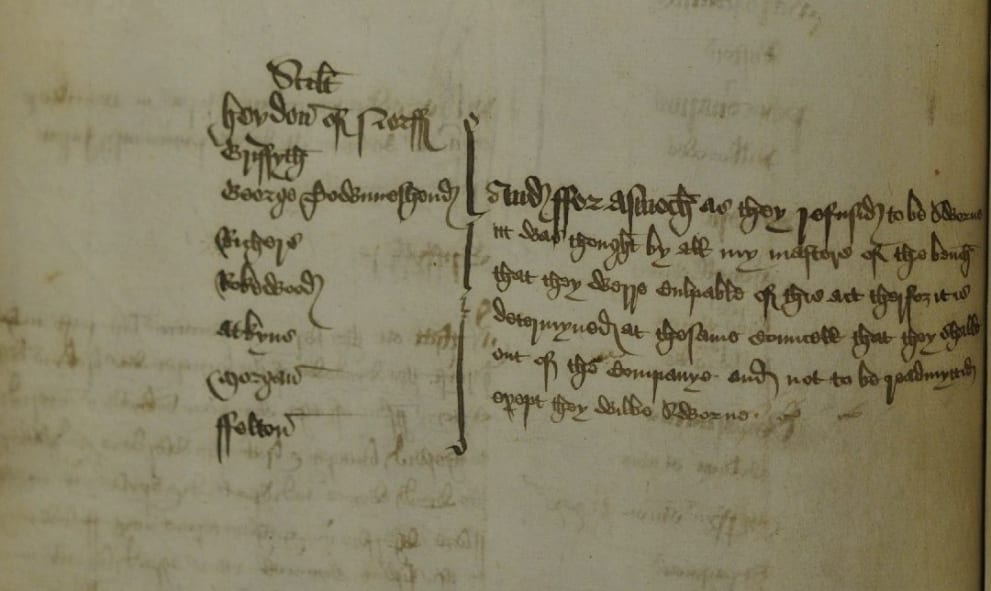 Scilt
heydon of Norff
Gryffyth
George Townneshend
Richers
Rokewood
Atkyns
Morgan
ffelton
And ffor asmoch as they refusid to be Sworne
itt was thought by all my masters of the bench
that they werre culpable of this act therfor it is
determyned at thesame Councell that they shalbe
out of the Companye and not to be readmyttid
except they wilbe Sworne